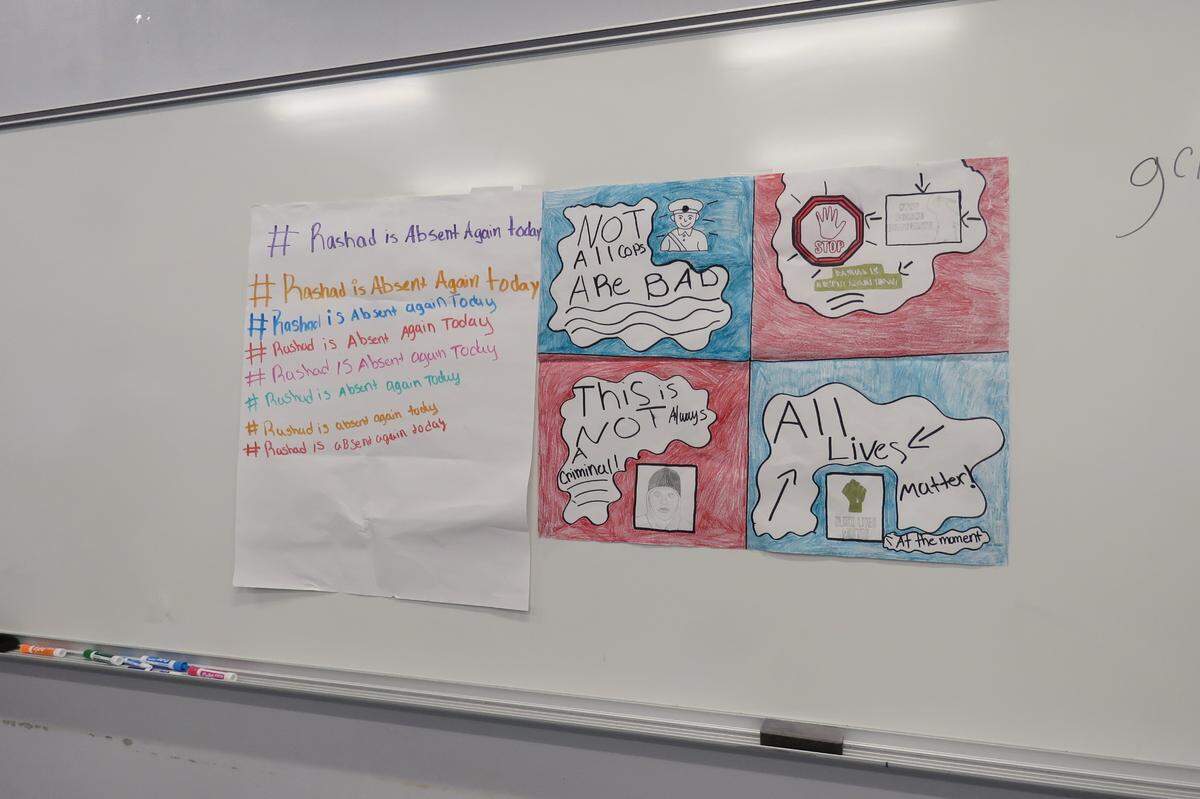 # Rashad is Absent Again today
# Rashad is Absent Again today
# Rashad is Absent again Today
# Rashad is Absent Again Today
# Rashad IS Absent again Today
# Rashad is Absent again Today
# Rashad is absent again today
# Rashad is absent again today
NOT
All cops
ARe BAD
STOP
RASHAD IS
ABSENT AGAIN TODAY
THis is
NOT Always
A
Criminal!
All
Lives
Matter!
BLACK LIVES
MATTER
At the moment